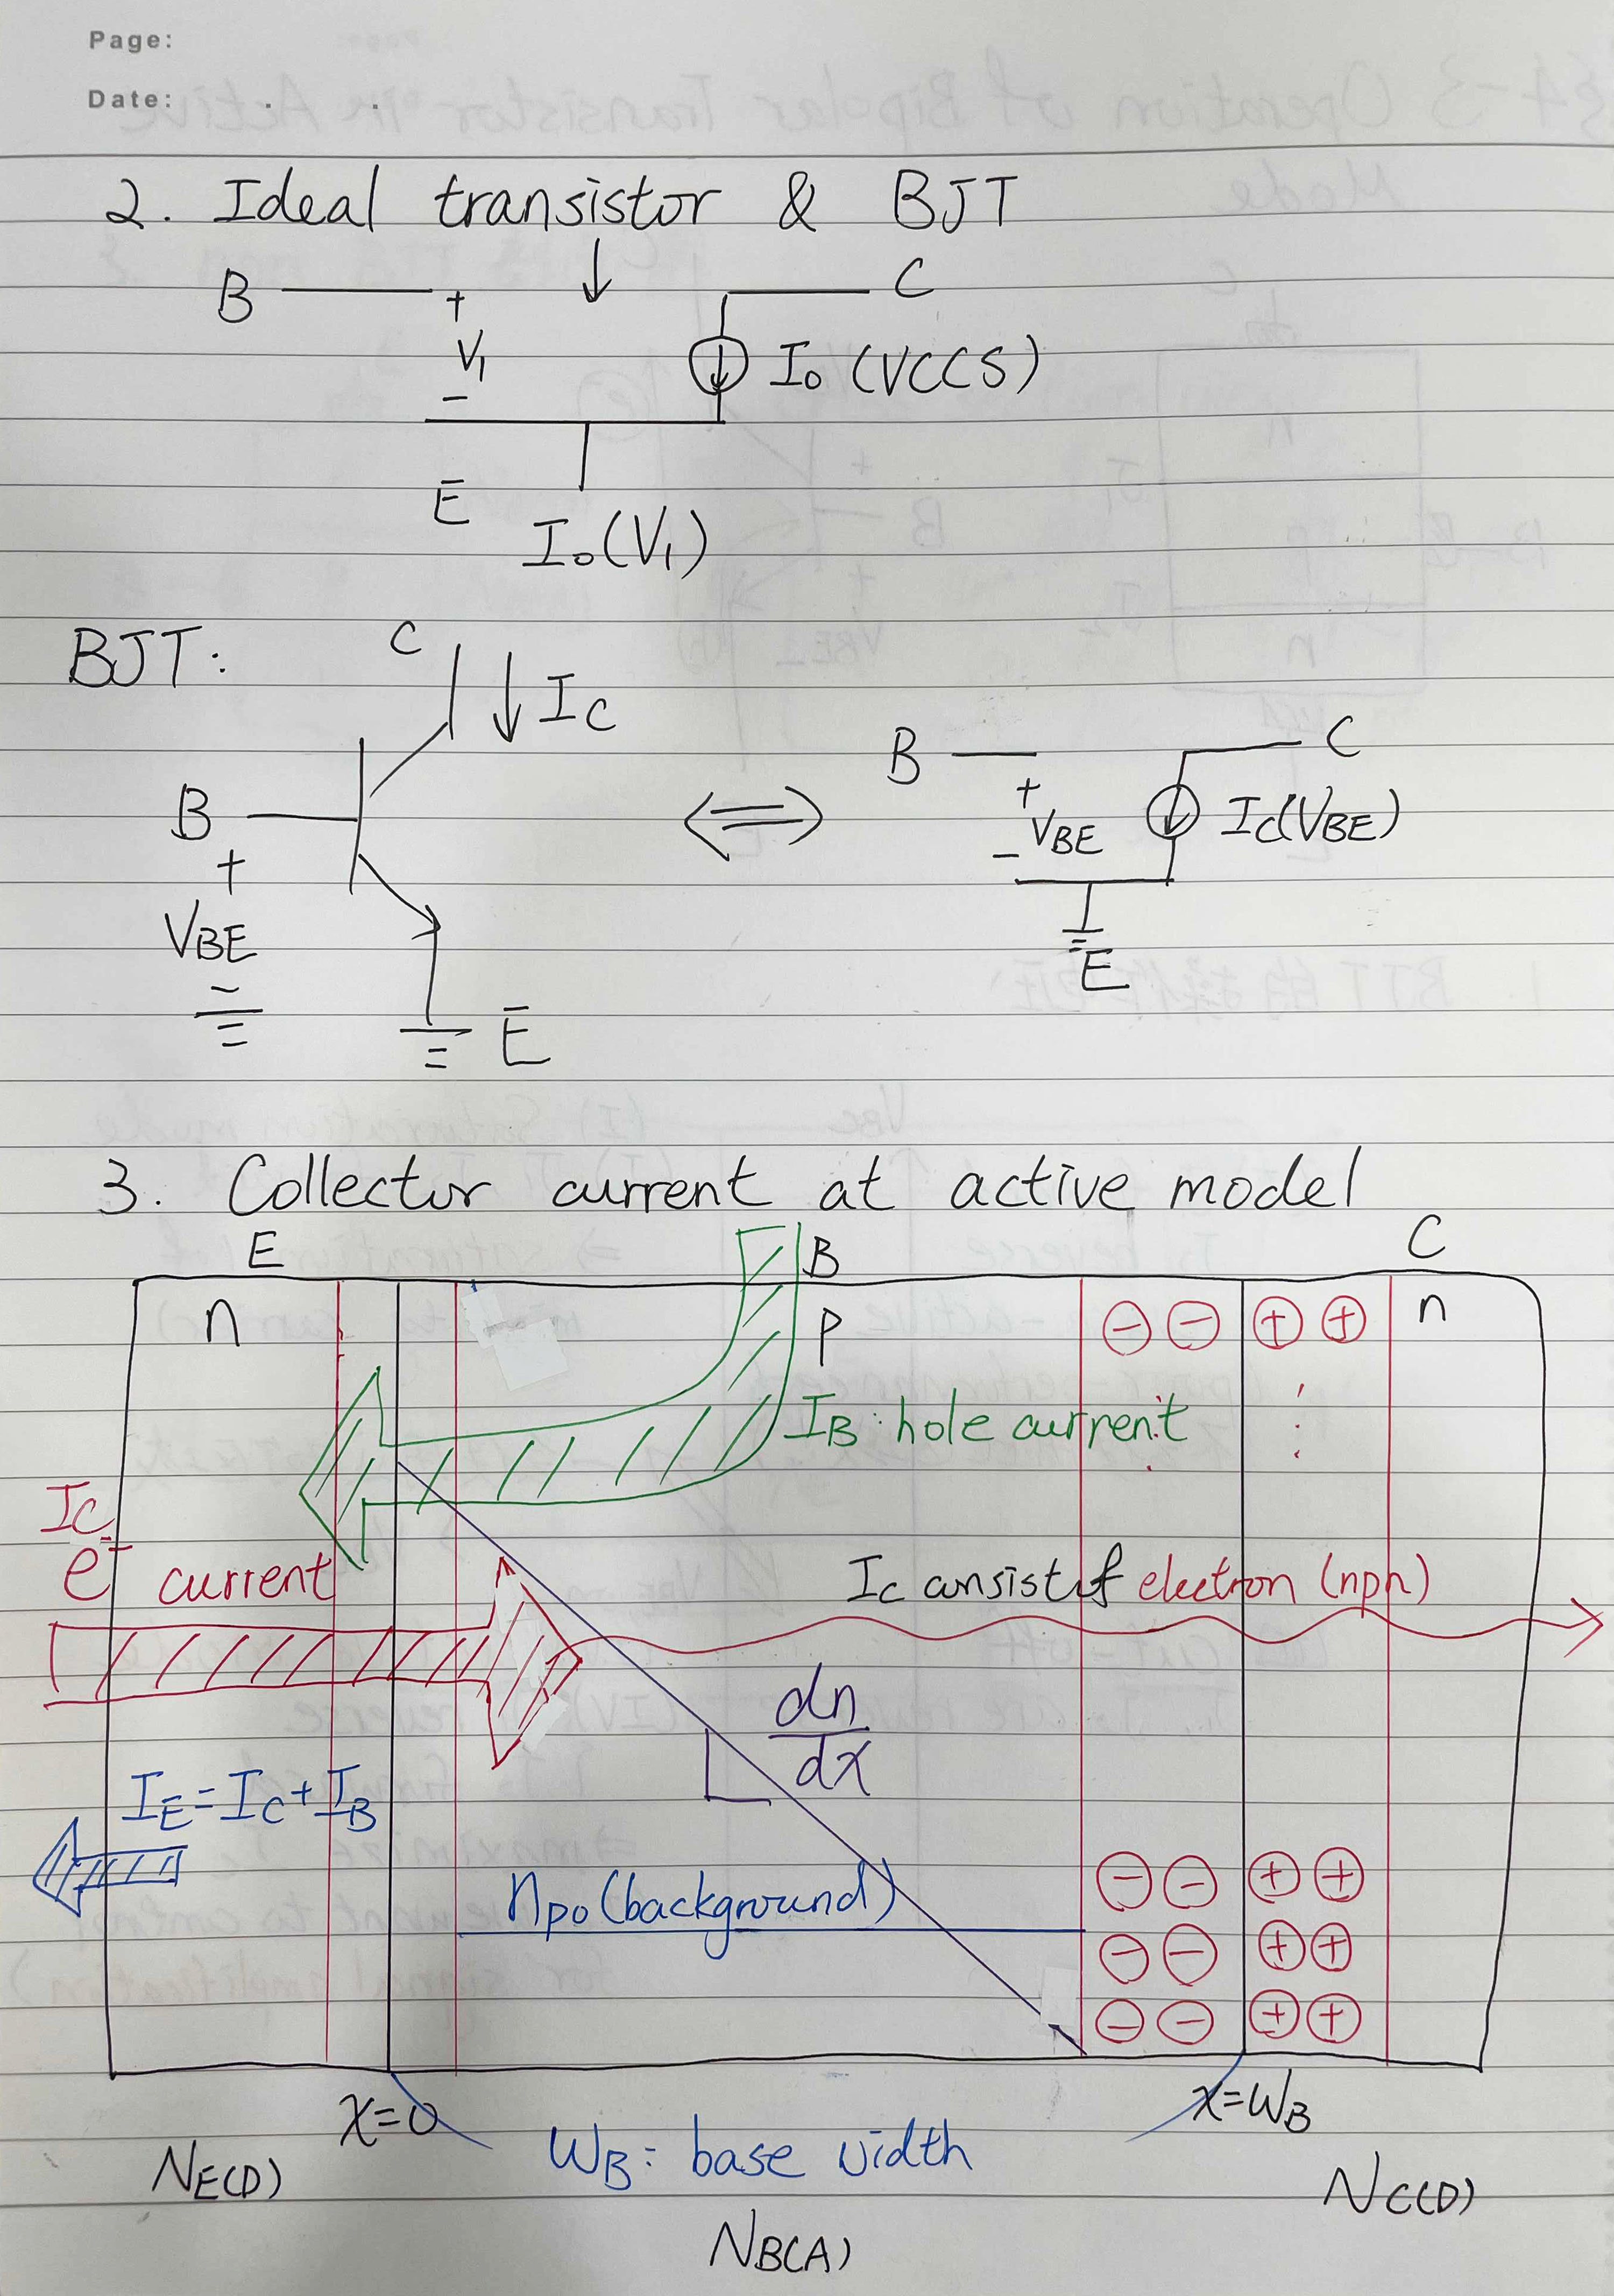 Page:
Date: . .
2. Ideal transistor & BJT
B + C
V1 I0 (VCCS)
-
E
I0(V1)
BJT:
C IC
B
+
VBE
-
E
B C
+
VBE IC(VBE)
-
E
3. Collector current at active model
E B C
n P n
- - + +
IB: hole current
IC
e- current
IC consist of electron (npn)
dn
dx
IE=IC+IB
npo (background)
- - + +
- - + +
- - + +
x=0 x=WB
WB: base width
NE(D) NC(D)
NB(A)